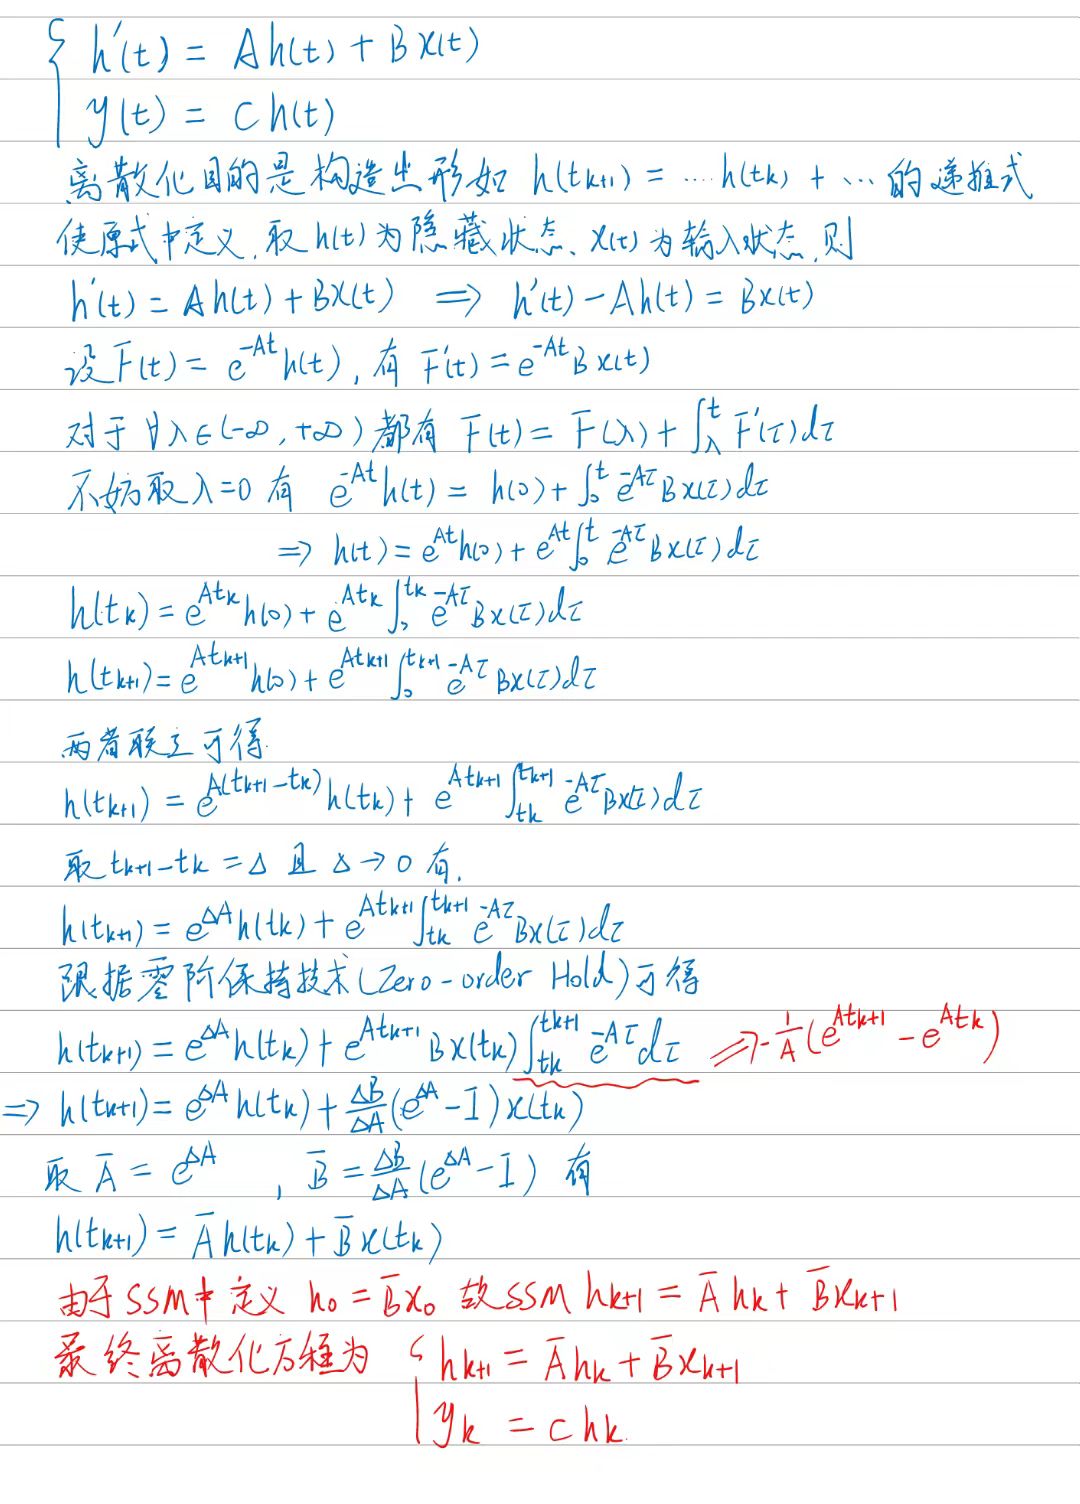 { h'(t) = Ah(t) + Bx(t)
y(t) = Ch(t)
离散化目的是构造出形如 h(tk+1) = …h(tk) + … 的递推式
使原式中定义,取h(t)为隐藏状态、x(t)为输入状态,则
h'(t) = Ah(t) + Bx(t) ⇒ h'(t) - Ah(t) = Bx(t)
设F(t) = e^{-At}h(t), 有 F'(t) = e^{-At}Bx(t)
对于∀λ∈(-∞, +∞)都有 F(t) = F(λ) + ∫_λ^t F'(τ)dτ
不妨取λ=0 有 e^{-At}h(t) = h(0) + ∫_0^t e^{-Aτ}Bx(τ)dτ
⇒ h(t) = e^{At}h(0) + e^{At}∫_0^t e^{-Aτ}Bx(τ)dτ
h(tk) = e^{Atk}h(0) + e^{Atk}∫_0^{tk} e^{-Aτ}Bx(τ)dτ
h(tk+1) = e^{Atk+1}h(0) + e^{Atk+1}∫_0^{tk+1} e^{-Aτ}Bx(τ)dτ
两者联立可得
h(tk+1) = e^{A(tk+1-tk)}h(tk) + e^{Atk+1}∫_{tk}^{tk+1} e^{-Aτ}Bx(τ)dτ
取 tk+1-tk = Δ 且 Δ→0 有.
h(tk+1) = e^{ΔA}h(tk) + e^{Atk+1}∫_{tk}^{tk+1} e^{-Aτ}Bx(τ)dτ
跟据零阶保持技术(Zero-order Hold)可得
h(tk+1) = e^{ΔA}h(tk) + e^{Atk+1}Bx(tk)∫_{tk}^{tk+1} e^{-Aτ}dτ ⇒ -1/A(e^{Atk+1} - e^{Atk})
⇒ h(tk+1) = e^{ΔA}h(tk) + ΔB/ΔA(e^{ΔA} - I)x(tk)
取 Ā = e^{ΔA} , B̄ = ΔB/ΔA(e^{ΔA} - I) 有
h(tk+1) = Āh(tk) + B̄x(tk)
由于SSM中定义 h0 = B̄x0 故SSM hk+1 = Āhk + B̄xk+1
最终离散化方程为 { hk+1 = Āhk + B̄xk+1
yk = chk.